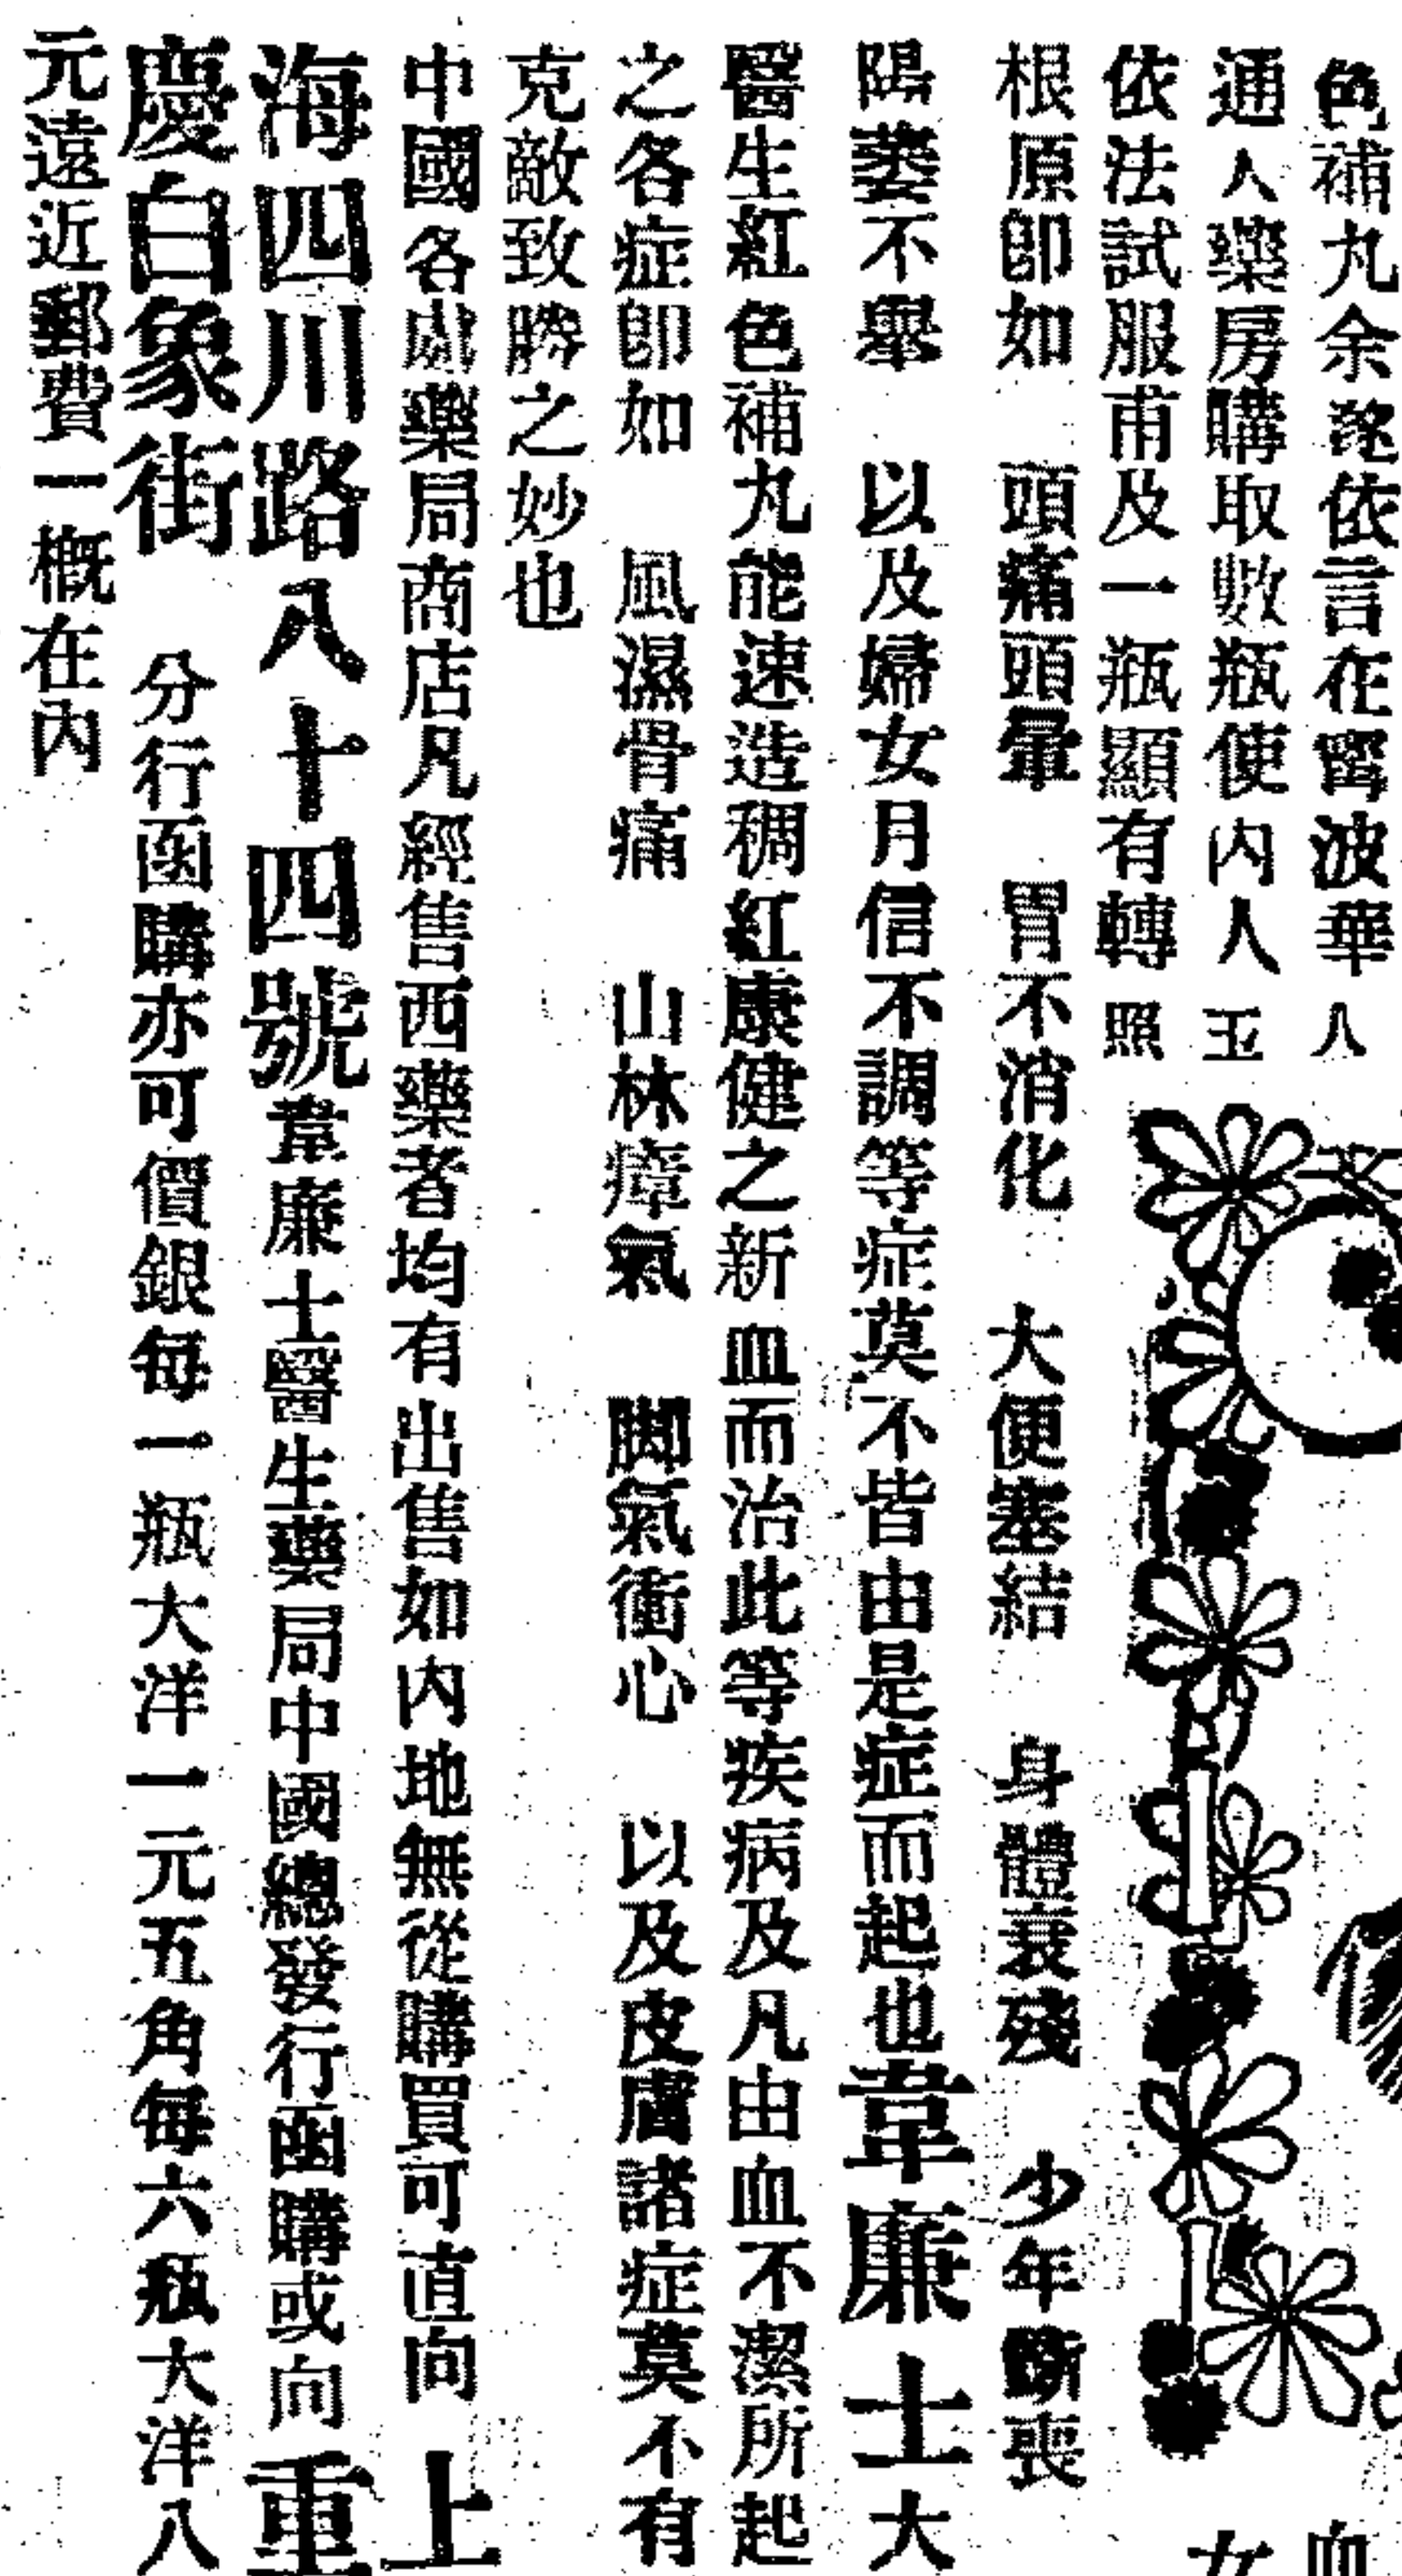 色補丸余遂依言在甯波華
通人藥房購取數瓶使内人
依法試服甫及一瓶顯有轉
八
玉
照
血
女
根原卽如　頭痛頭暈　胃不消化　大便塞結　身體衰殘　少年斲喪
陽萎不舉　以及婦女月信不調等症莫不皆由是症而起也韋廉士大
醫生紅色補丸能速造稠紅康健之新血而治此等疾病及凡由血不潔所起
之各症卽如　風濕骨痛　山林瘴氣　脚氣衝心　以及皮膚諸症莫不有
克敵致勝之妙也
中國各處藥局商店凡經售西藥者均有出售如内地無從購買可直向上
海四川路八十四號韋廉士醫生藥局中國總發行函購或向重
慶白象街　分行函購亦可價銀每一瓶大洋一元五角每六瓶大洋八
元遠近郵費一概在内